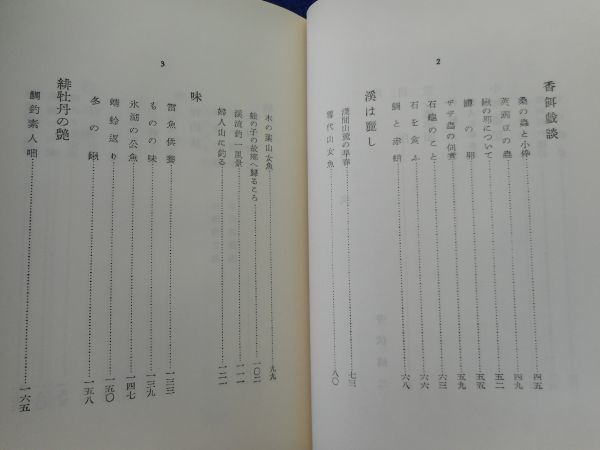 2
香餌戯談
桑の蟲と小伜
四五
英豌豆の蟲
四九
鰍の卵について
五二
鱒の卵
五九
ザザ蟲の佃煮
五九
石龜のこと
六三
石を食ふ
六六
鯛と赤蛸
六八
溪は麗し
淺間山麓の早春
七三
雪代山女魚
八〇
3
木の葉山女魚
九九
鮎の子の故郷へ歸るころ
一〇二
溪流釣一風景
一一一
婦人山女に釣る
一二一
味
雷魚供養
一三三
ものの味
一三九
氷湖の公魚
一四七
蜻蛉返り
一五〇
冬の鰍
一五八
緋牡丹の艶
鯛釣素人咄
一六五